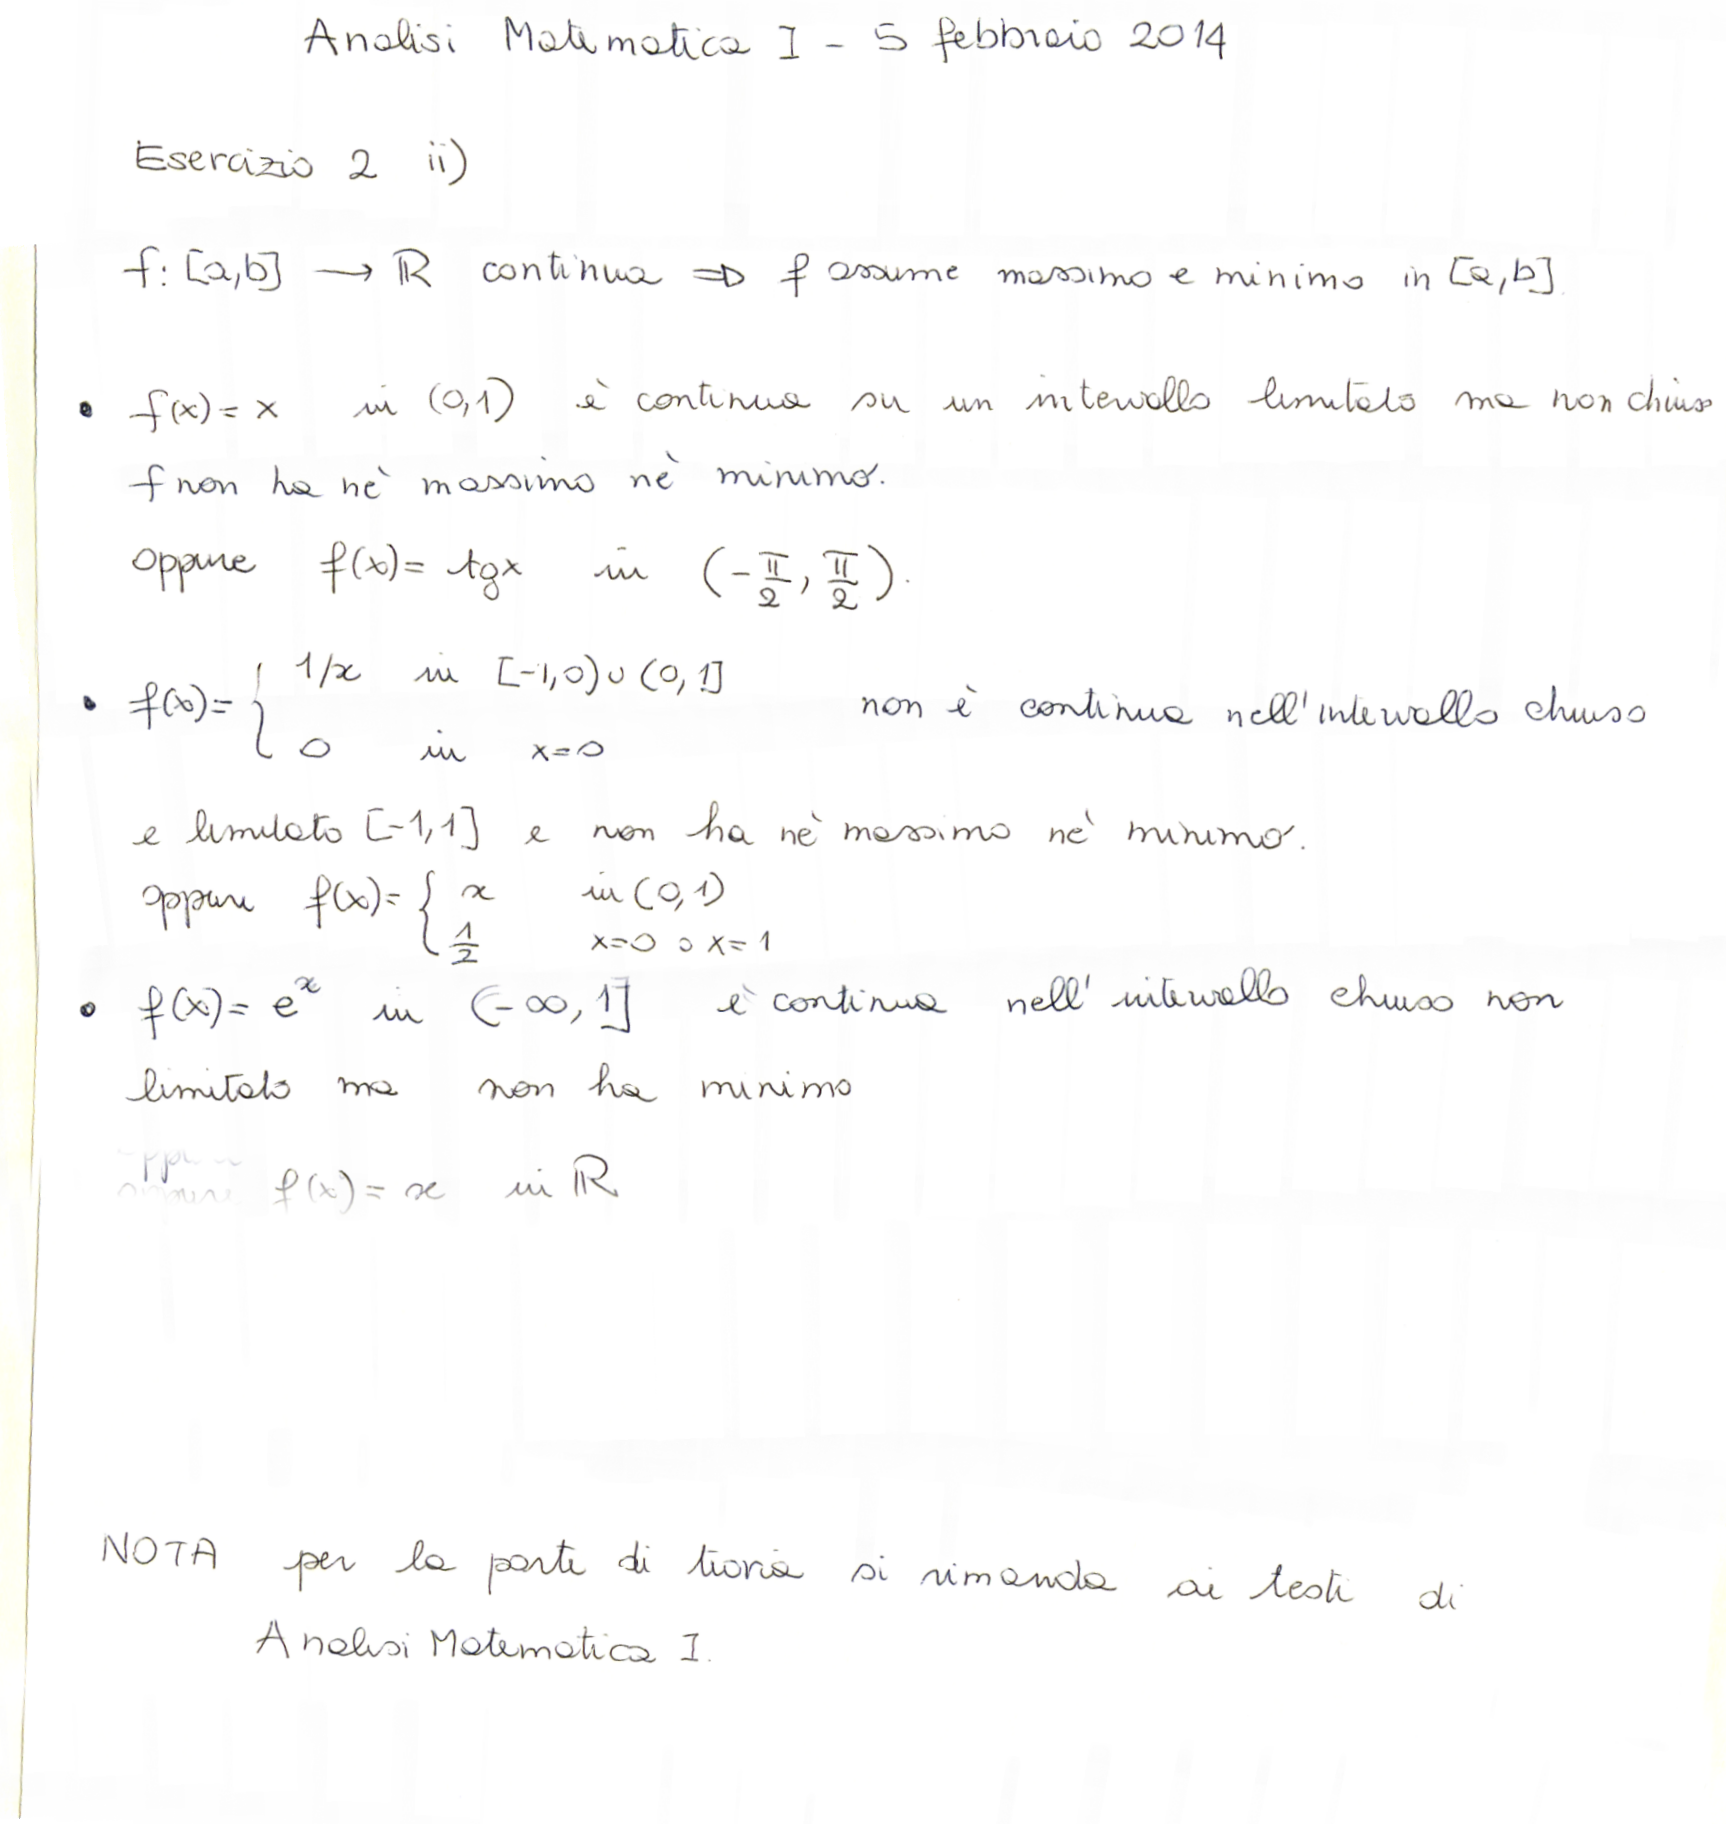 Analisi Matematica I - 5 febbraio 2014
Esercizio 2 ii)
f: [a,b] → ℝ continua ⇒ f assume massimo e minimo in [a,b].
• f(x) = x in (0,1) è continua su un intervallo limitato ma non chiuso
f non ha nè massimo nè minimo.
oppure f(x) = tgx in (-π/2, π/2).
• f(x) = { 1/x in [-1,0) ∪ (0,1]
0 in x=0 non è continua nell'intervallo chiuso
e limitato [-1,1] e non ha nè massimo nè minimo.
oppure f(x) = { x in (0,1)
1/2 x=0 o x=1
• f(x) = e^x in (-∞, 1] è continua nell'intervallo chiuso non
limitato ma non ha minimo
oppure f(x) = x in ℝ
NOTA per la parte di teoria si rimanda ai testi di
Analisi Matematica I.